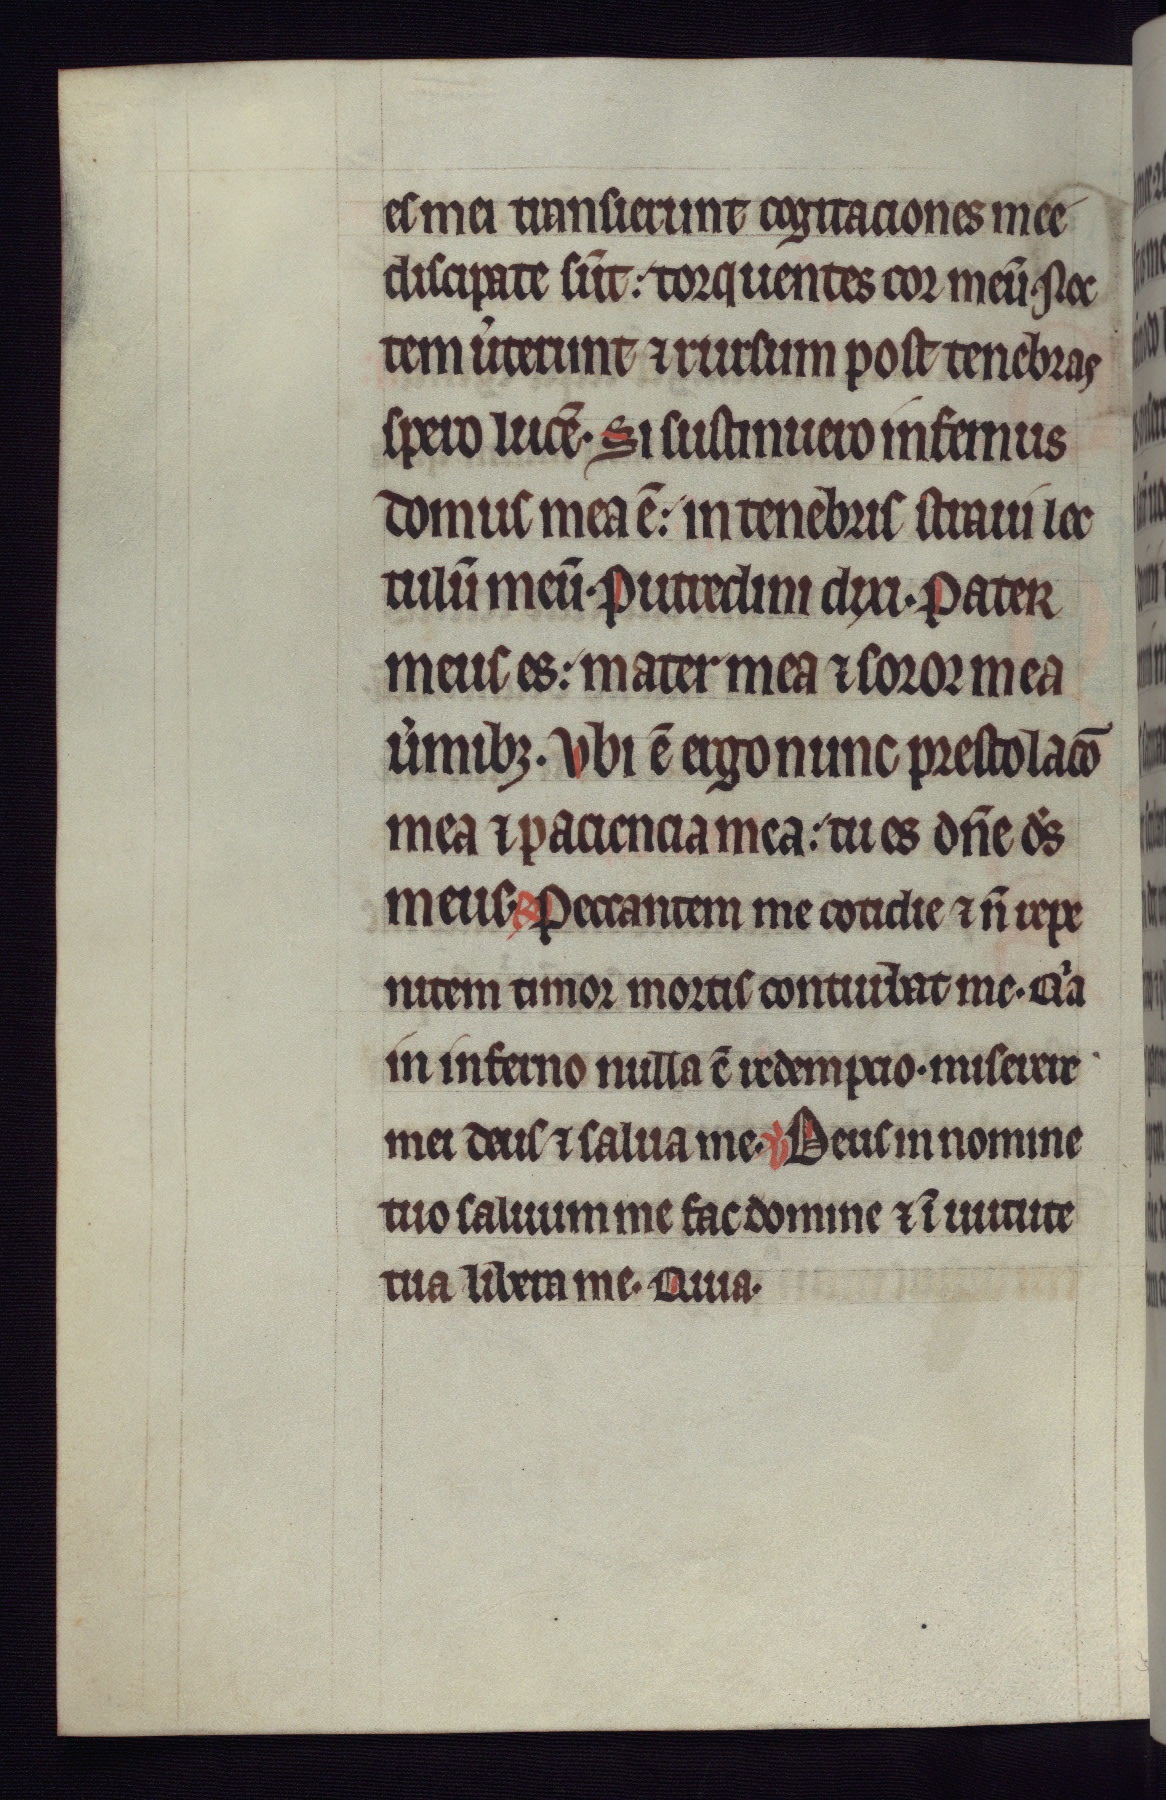 es mei transierunt cogitaciones mee
discipate sūt: torquentes cor meū. Noc
tem ūterunt ⁊ rursum post tenebras
spero lucē. Si sustinuero infernus
domus mea ē: in tenebris straui lec
tulū meū. Putredini dixi. Pater
meus es: mater mea ⁊ soror mea
ūmibꝫ. Vbi ē ergo nunc prestolacō
mea ⁊ paciencia mea: tu es dn̄e ds̄
meus. R Peccantem me cotidie ⁊ n̄ repe
nitem timor mortis conturbat me. Qͥa
in inferno nulla ē redempcio. miserere
mei deus ⁊ salua me. V Deus in nomine
tuo saluum me fac domine ⁊ ī uirtute
tua libera me. Quia.